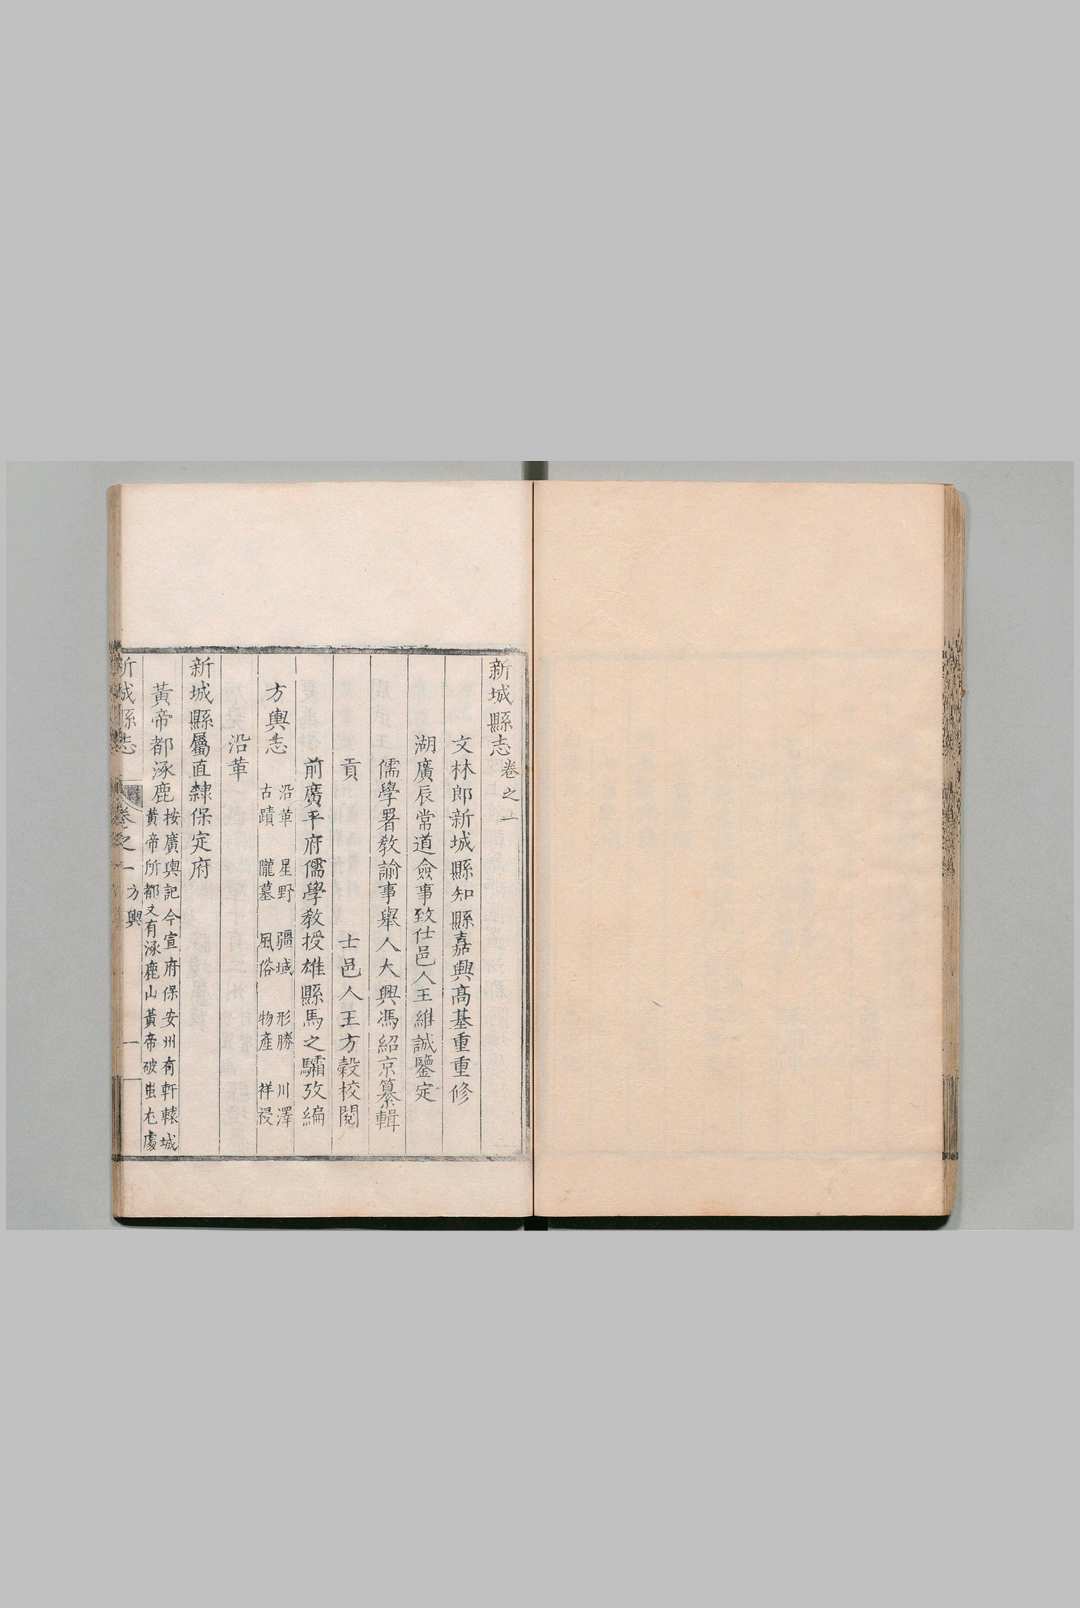 新城縣志卷之一
文林郎新城縣知縣嘉興高基重重修
湖廣辰常道僉事致仕邑人王維誠鑒定
儒學署教諭事舉人大興馮紹京纂輯
貢士邑人王方穀校閱
前廣平府儒學教授雄縣馬之驦攷編
方輿志
沿革 星野 疆域 形勝 川澤
古蹟 隴墓 風俗 物產 祥祲
沿革
新城縣屬直隸保定府
黃帝都涿鹿
按廣輿記今宣府保安州有軒轅城
黃帝所都又有涿鹿山黃帝破蚩尤處
新城縣志 卷之一 方輿 一